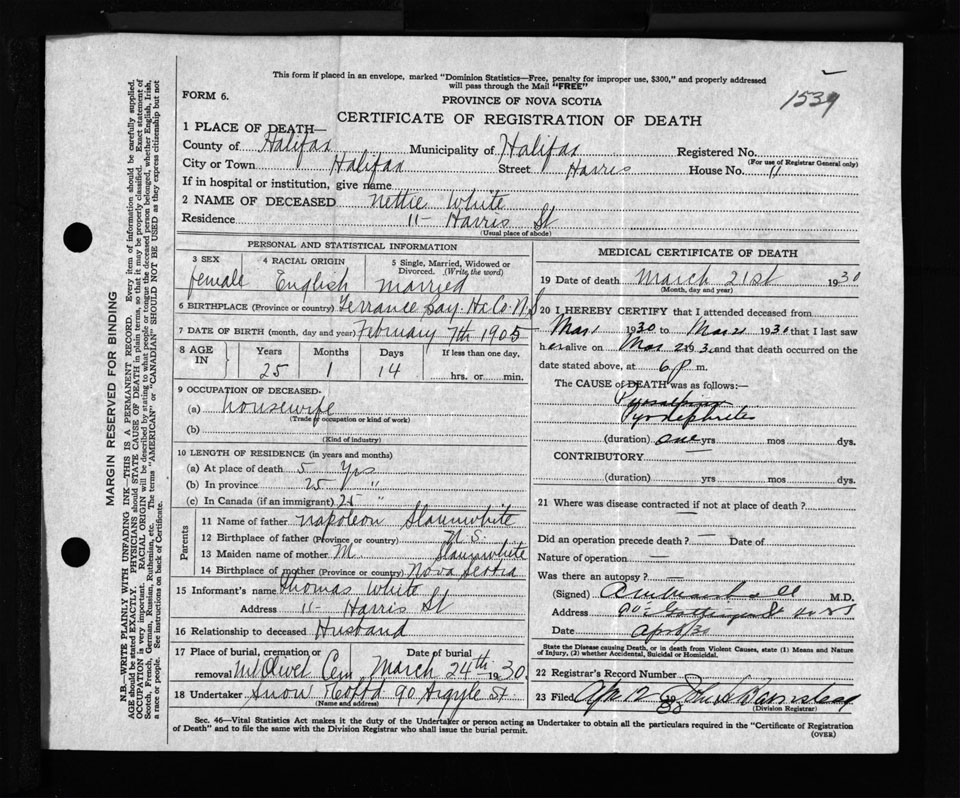 This form if placed in an envelope, marked "Dominion Statistics—Free, penalty for improper use, $300," and properly addressed
will pass through the Mail "FREE"
1539
FORM 6.
PROVINCE OF NOVA SCOTIA
CERTIFICATE OF REGISTRATION OF DEATH
1 PLACE OF DEATH—
County of Halifax Municipality of Halifax Registered No.
(For use of Registrar General only)
City or Town Halifax Street Harris House No. 11
If in hospital or institution, give name
2 NAME OF DECEASED Nettie White
Residence 11- Harris St
(Usual place of abode)
PERSONAL AND STATISTICAL INFORMATION
3 SEX female
4 RACIAL ORIGIN English
5 Single, Married, Widowed or Divorced. (Write the word) married
6 BIRTHPLACE (Province or country) Terrance Bay. Hx Co N.S
7 DATE OF BIRTH (month, day and year) February 7th 1905
8 AGE IN Years 25 Months 1 Days 14 If less than one day, hrs. or min.
9 OCCUPATION OF DECEASED—
(a) housewife
(Trade, occupation or kind of work)
(b)
(Kind of industry)
10 LENGTH OF RESIDENCE (in years and months)
(a) At place of death 5 Yrs
(b) In province 25 "
(c) In Canada (if an immigrant) 25 "
Parents
11 Name of father Napoleon Slaunwhite
12 Birthplace of father (Province or country) N.S.
13 Maiden name of mother M. Slaunwhite
14 Birthplace of mother (Province or country) Nova Scotia
15 Informant's name Thomas White
Address 11- Harris St
16 Relationship to deceased Husband
17 Place of burial, cremation or removal Mt Olivet Cem Date of burial March 24th 1930
18 Undertaker Snow 90 Argyle St.
(Name and address)
MEDICAL CERTIFICATE OF DEATH
19 Date of death March 21st 1930
(Month, day and year)
20 I HEREBY CERTIFY that I attended deceased from
Mar 1 1930 to Mar 21 1930 that I last saw
her alive on Mar 21 1930 and that death occurred on the
date stated above, at 6 P m.
The CAUSE OF DEATH was as follows:—
Pyonephritis
(duration) one yrs mos dys.
CONTRIBUTORY
(duration) yrs mos dys.
21 Where was disease contracted if not at place of death ?
Did an operation precede death ? — Date of
Nature of operation —
Was there an autopsy ? —
(Signed) M.D.
Address Gottingen St
Date Apr 8/30
State the Disease causing Death, or in death from Violent Causes, state (1) Means and Nature
of Injury, (2) whether Accidental, Suicidal or Homicidal.
22 Registrar's Record Number
23 Filed Apr 12 1930 John
(Division Registrar)
Sec. 46—Vital Statistics Act makes it the duty of the Undertaker or person acting as Undertaker to obtain all the particulars required in the "Certificate of Registration
of Death" and to file the same with the Division Registrar who shall issue the burial permit.
(OVER)
MARGIN RESERVED FOR BINDING
N.B.—WRITE PLAINLY WITH UNFADING INK—THIS IS A PERMANENT RECORD. Every item of information should be carefully supplied.
AGE should be stated EXACTLY. PHYSICIANS should STATE CAUSE OF DEATH in plain terms, so that it may be properly classified. Exact statement of
OCCUPATION is very important. RACIAL ORIGIN will be described by stating to what people or tongue the deceased person belonged, whether English, Irish,
Scotch, French, German, Russian, Ruthenian, etc. The terms "AMERICAN" or "CANADIAN" SHOULD NOT BE USED as they express citizenship but not
a race or people. See instructions on back of Certificate.